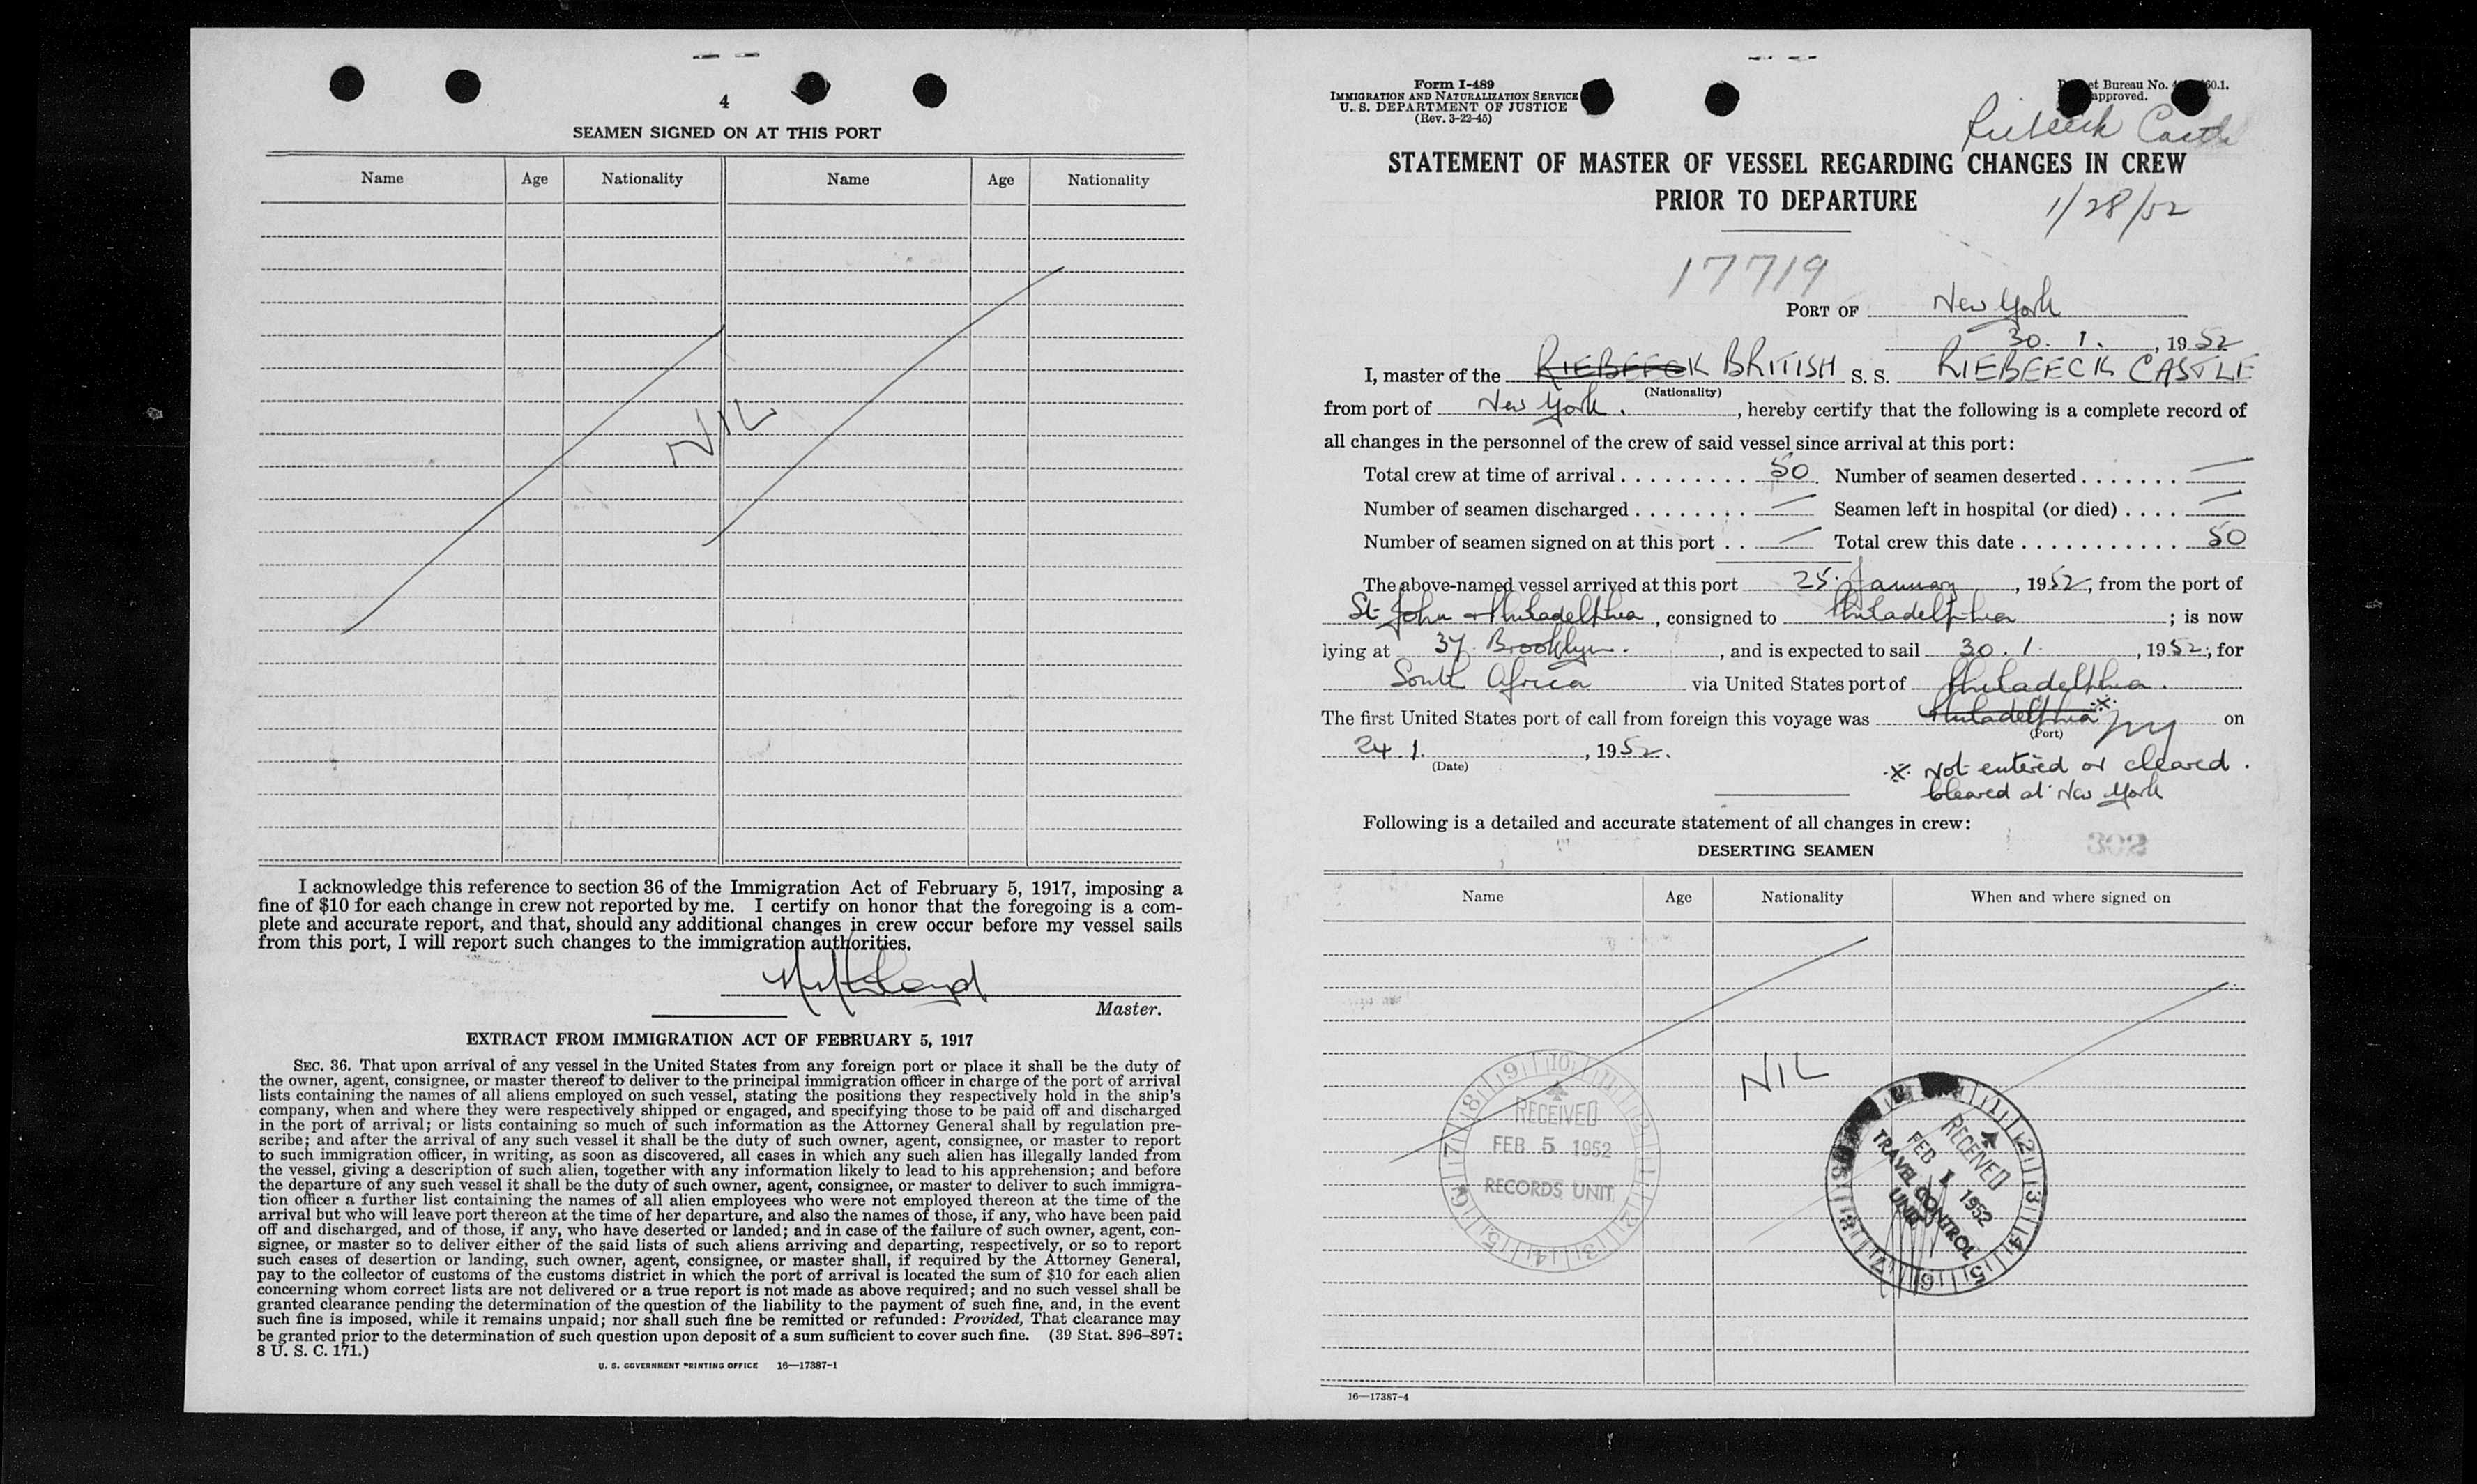 4
SEAMEN SIGNED ON AT THIS PORT
Name Age Nationality Name Age Nationality
NIL
I acknowledge this reference to section 36 of the Immigration Act of February 5, 1917, imposing a
fine of $10 for each change in crew not reported by me. I certify on honor that the foregoing is a com-
plete and accurate report, and that, should any additional changes in crew occur before my vessel sails
from this port, I will report such changes to the immigration authorities.
Master.
EXTRACT FROM IMMIGRATION ACT OF FEBRUARY 5, 1917
SEC. 36. That upon arrival of any vessel in the United States from any foreign port or place it shall be the duty of
the owner, agent, consignee, or master thereof to deliver to the principal immigration officer in charge of the port of arrival
lists containing the names of all aliens employed on such vessel, stating the positions they respectively hold in the ship's
company, when and where they were respectively shipped or engaged, and specifying those to be paid off and discharged
in the port of arrival; or lists containing so much of such information as the Attorney General shall by regulation pre-
scribe; and after the arrival of any such vessel it shall be the duty of such owner, agent, consignee, or master to report
to such immigration officer, in writing, as soon as discovered, all cases in which any such alien has illegally landed from
the vessel, giving a description of such alien, together with any information likely to lead to his apprehension; and before
the departure of any such vessel it shall be the duty of such owner, agent, consignee, or master to deliver to such immigra-
tion officer a further list containing the names of all alien employees who were not employed thereon at the time of the
arrival but who will leave port thereon at the time of her departure, and also the names of those, if any, who have been paid
off and discharged, and of those, if any, who have deserted or landed; and in case of the failure of such owner, agent, con-
signee, or master so to deliver either of the said lists of such aliens arriving and departing, respectively, or so to report
such cases of desertion or landing, such owner, agent, consignee, or master shall, if required by the Attorney General,
pay to the collector of customs of the customs district in which the port of arrival is located the sum of $10 for each alien
concerning whom correct lists are not delivered or a true report is not made as above required; and no such vessel shall be
granted clearance pending the determination of the question of the liability to the payment of such fine, and, in the event
such fine is imposed, while it remains unpaid; nor shall such fine be remitted or refunded: Provided, That clearance may
be granted prior to the determination of such question upon deposit of a sum sufficient to cover such fine. (39 Stat. 896-897;
8 U. S. C. 171.)
U. S. GOVERNMENT PRINTING OFFICE 16—17387-1
Form I-489
IMMIGRATION AND NATURALIZATION SERVICE
U. S. DEPARTMENT OF JUSTICE
(Rev. 3-22-45)
Bureau No.
approved.
Riebeeck Castle
STATEMENT OF MASTER OF VESSEL REGARDING CHANGES IN CREW
PRIOR TO DEPARTURE
1/28/52
17719
PORT OF New York
30. 1. , 1952
I, master of the RIEBEECK BRITISH S. S. RIEBEECK CASTLE
(Nationality)
from port of New York. , hereby certify that the following is a complete record of
all changes in the personnel of the crew of said vessel since arrival at this port:
Total crew at time of arrival . . . . . . . . . 50. Number of seamen deserted . . . . . . . —
Number of seamen discharged . . . . . . . . — Seamen left in hospital (or died) . . . . —
Number of seamen signed on at this port . . — Total crew this date . . . . . . . . . . . 50
The above-named vessel arrived at this port 25. January , 1952, from the port of
St John + Philadelphia , consigned to Philadelphia ; is now
lying at 37. Brooklyn. , and is expected to sail 30. 1. , 1952, for
South Africa via United States port of Philadelphia.
The first United States port of call from foreign this voyage was Philadelphia ※ NY on
(Port)
24. 1. , 1952.
(Date)
※ Not entered or cleared.
Cleared at New York
Following is a detailed and accurate statement of all changes in crew:
302
DESERTING SEAMEN
Name Age Nationality When and where signed on
NIL
RECEIVED
FEB 5 1952
RECORDS UNIT
RECEIVED
FEB 1 1952
TRAVEL CONTROL
UNIT
16—17387-4